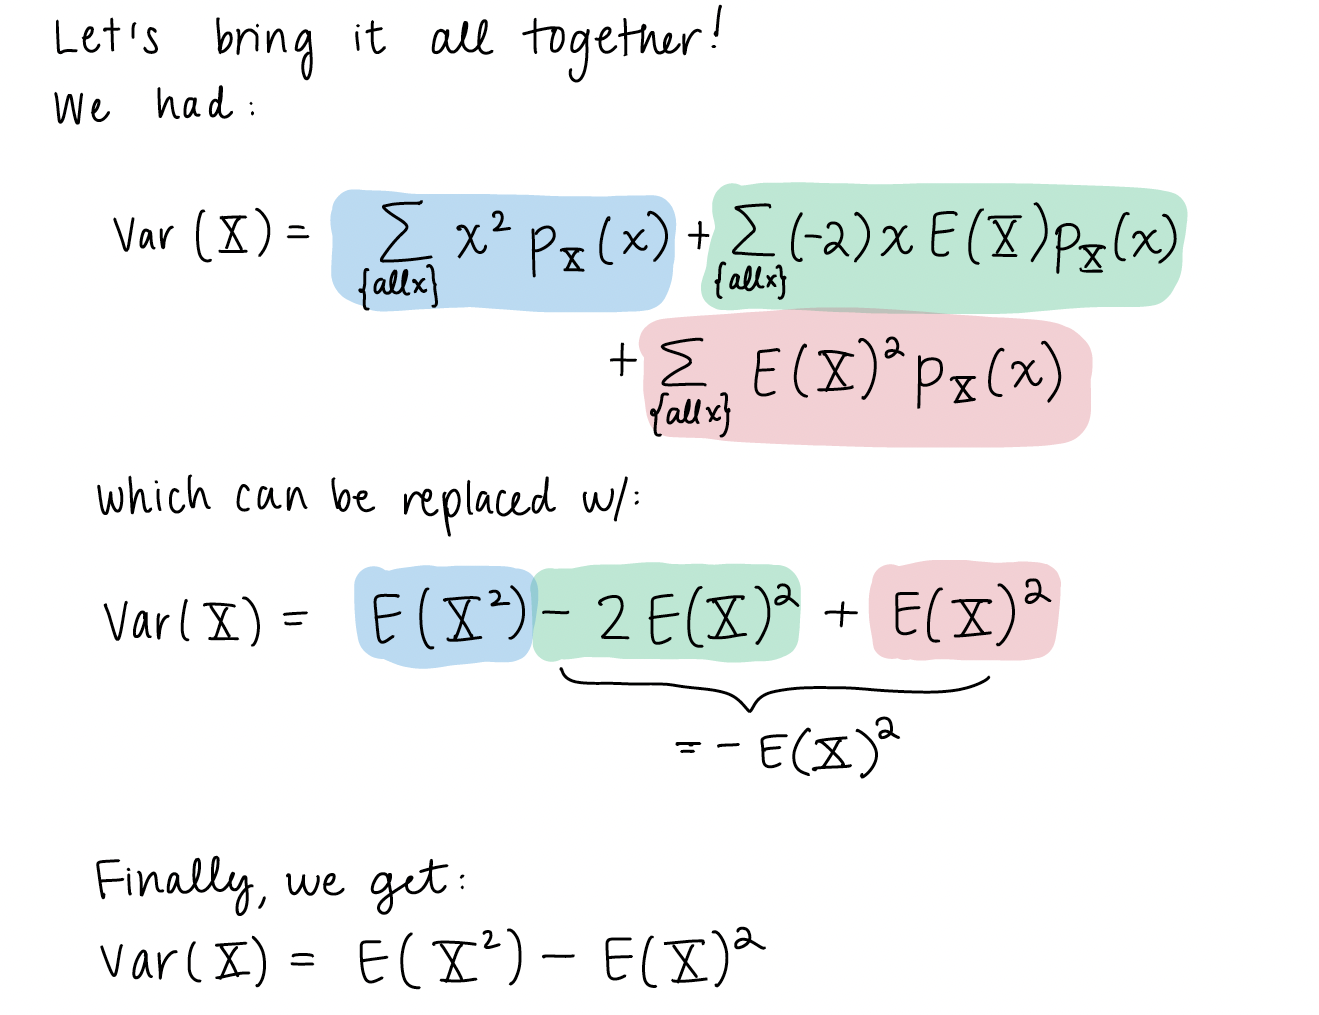 Let's bring it all together!
We had:
Var (X) = ∑ x² p_X(x) + ∑ (-2) x E(X) p_X(x)
{all x} {all x}
+ ∑ E(X)² p_X(x)
{all x}
which can be replaced w/:
Var(X) = E(X²) - 2 E(X)² + E(X)²
= - E(X)²
Finally, we get:
Var(X) = E(X²) - E(X)²